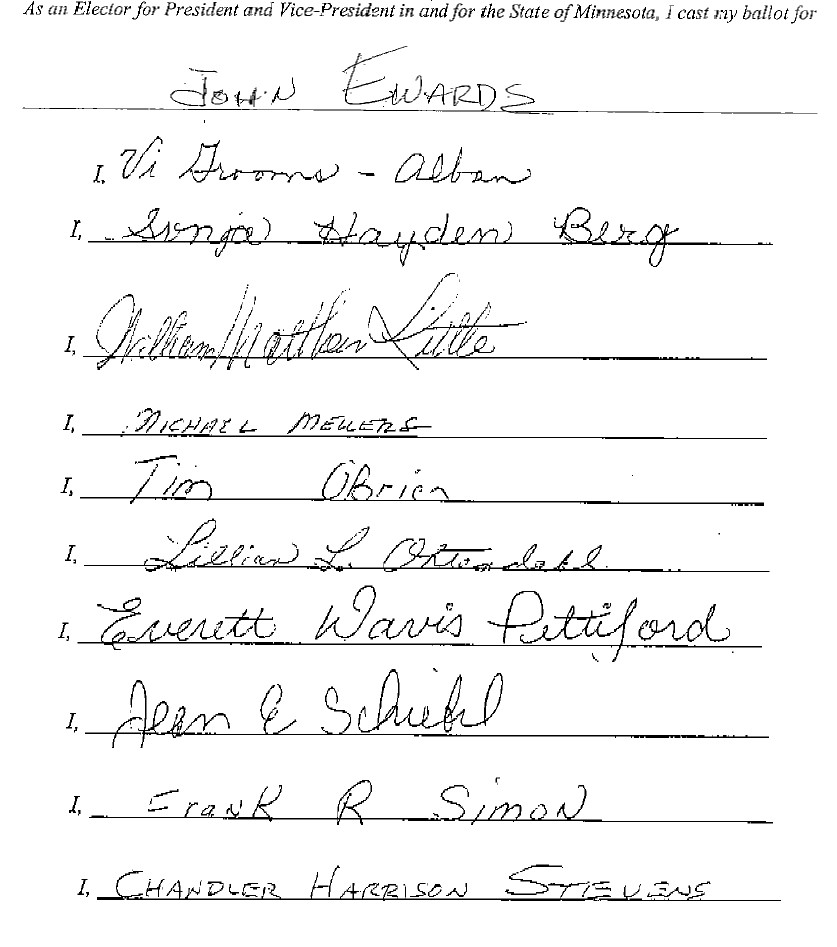 As an Elector for President and Vice-President in and for the State of Minnesota, I cast my ballot for
JOHN EWARDS
I, Vi Grooms - Alban
I, Sonja Hayden Berg
I, William Matthew Little
I, MICHAEL MEUERS
I, Tim OBrien
I, Lillian L. Ortendahl
I, Everett Davis Pettiford
I, Jean E Schiebl
I, Frank R Simon
I, CHANDLER HARRISON STIEVENS